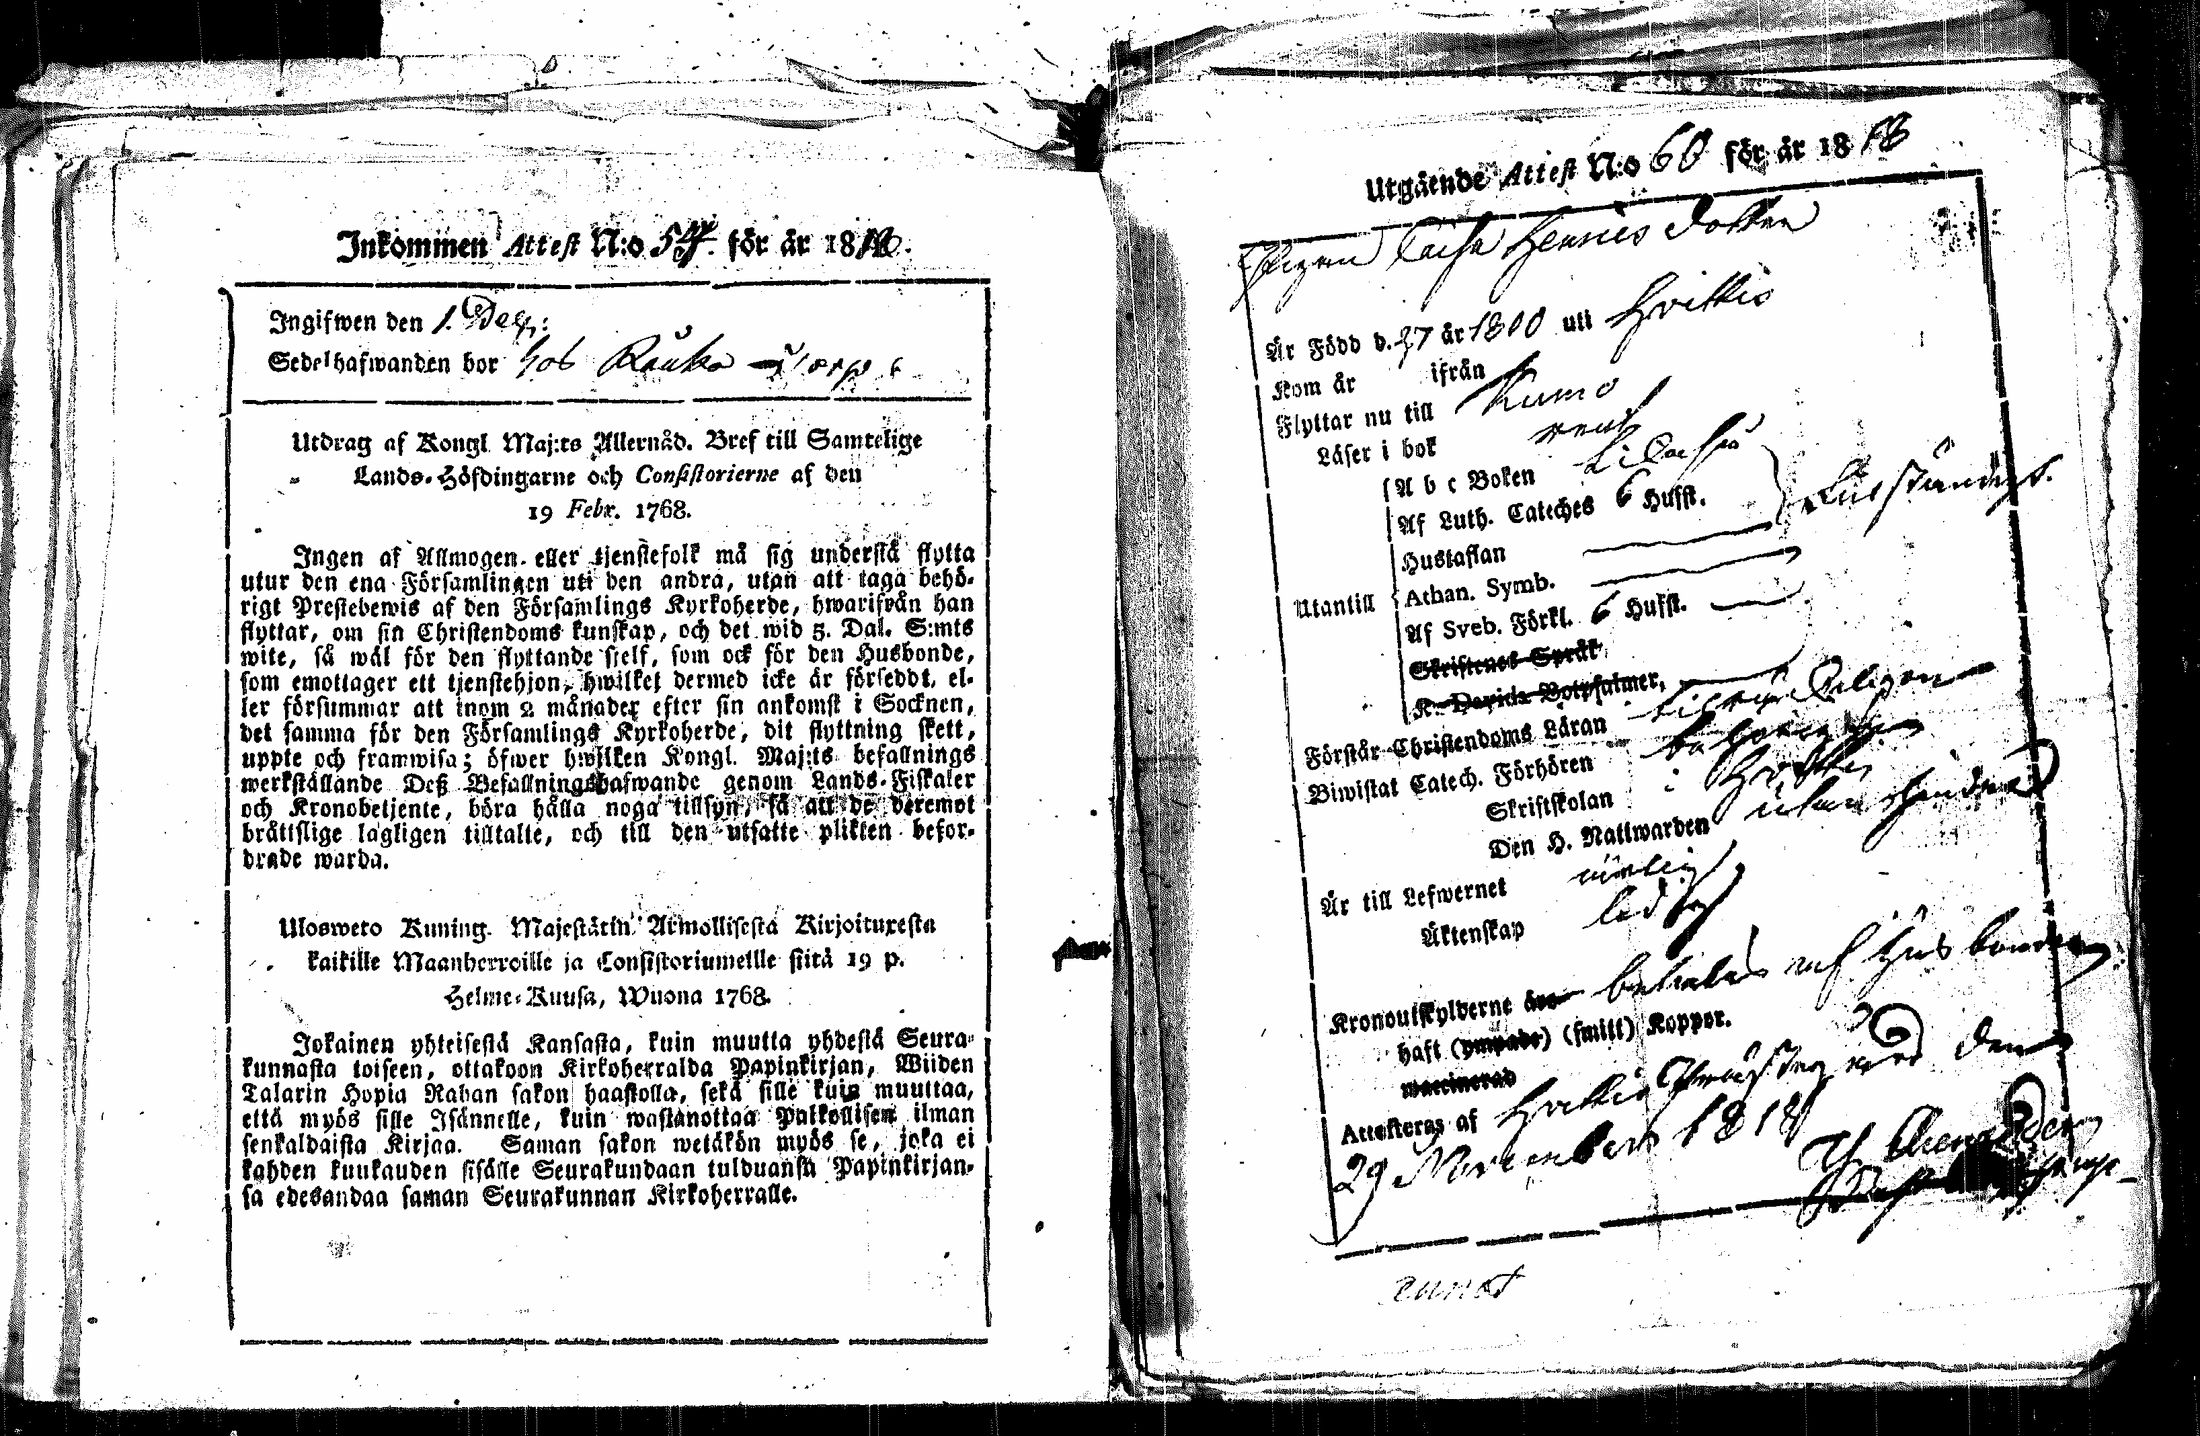 Inkommen Attest N:o 54. för år 1818.
Ingifwen den 1. Dec:
Sedelhafwanden bor hos
Utdrag af Kongl. Maj:ts Allernåd. Bref till Samtelige
Lands-Höfdingarne och Consistorierne af den
19 Febr. 1768.
Ingen af Allmogen eller tjenstefolk må sig understå flytta
utur den ena Församlingen uti den andra, utan att taga behö-
rigt Prestebewis af den Församlings Kyrkoherde, hwarifrån han
flyttar, om sin Christendoms kunskap, och det wid 5. Dal. S:mts
wite, så wäl för den flyttande sjelf, som ock för den Husbonde,
som emottager ett tjenstehjon, hwilket dermed icke är försedt, el-
ler försummar att inom 2 månader efter sin ankomst i Socknen,
det samma för den Församlings Kyrkoherde, dit flyttning skett,
uppte och framwisa; öfwer hwilken Kongl. Maj:ts befallnings
werkställande Deß Befallningshafwande genom Lands-Fiskaler
och Kronobetjente, böra hålla noga tillsyn, så att de deremot
bråttslige lagligen tilltalte, och till den utsatte plikten befor-
drade warda.
Ulosweto Kuning. Majestätin Armollisesta Kirjoituxesta
kaikille Maanherroille ja Consistoriumeille siitä 19 p.
Helme-Kuusa, Wuona 1768.
Jokainen yhteisestä Kansasta, kuin muutta yhdestä Seura-
kunnasta toiseen, ottakoon Kirkoherralda Papinkirjan, Wiiden
Talarin Hopia Rahan sakon haastolla, sekä sille kuin muuttaa,
että myös sille Isännelle, kuin wastanottaa Palkollisen ilman
senkaldaista Kirjaa. Saman sakon wetäkön myös se, joka ei
kahden kuukauden sisälle Seurakundaan tulduansa Papinkirjan-
sa edesandaa saman Seurakunnan Kirkoherralle.
Utgående Attest N:o 60 för år 1818
Pigan Caisa Henrics dotter
Är Född d. 27 år 1800 uti Hvittis
Kom år ifrån
Flyttar nu till Kumo
Läser i bok rent
Utantill
A b c Boken
Af Luth. Cateches 6 Hufst.
Hustaflan
Athan. Symb.
Af Sveb. Förkl. 6 Hufst.
Skriftenes Språk
K. Davids Botpsalmer,
Förstår Christendoms Läran
Biwistat Catech. Förhören
Skriftskolan i Hvittis
Den H. Nattwarden utan hinder
Är till Lefwernet ärlig
Äktenskap ledig
Kronoutskylderne äro betalas af Husbonden
haft (ympade) (smitt) Koppor.
waccinerad
Attesteras af Hvittis Prästegård den
29 November 1818